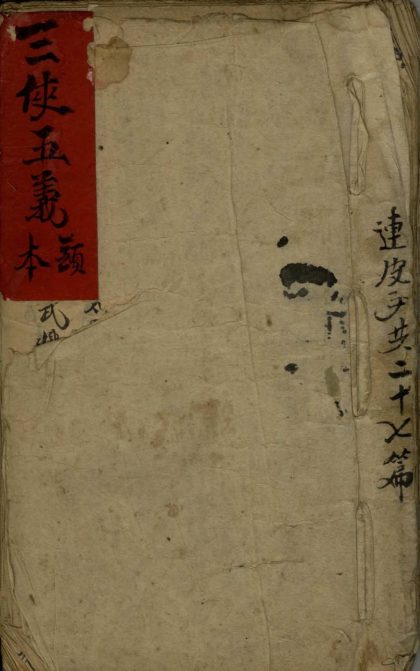 連皮子共二十七篇
三俠五義
頭本